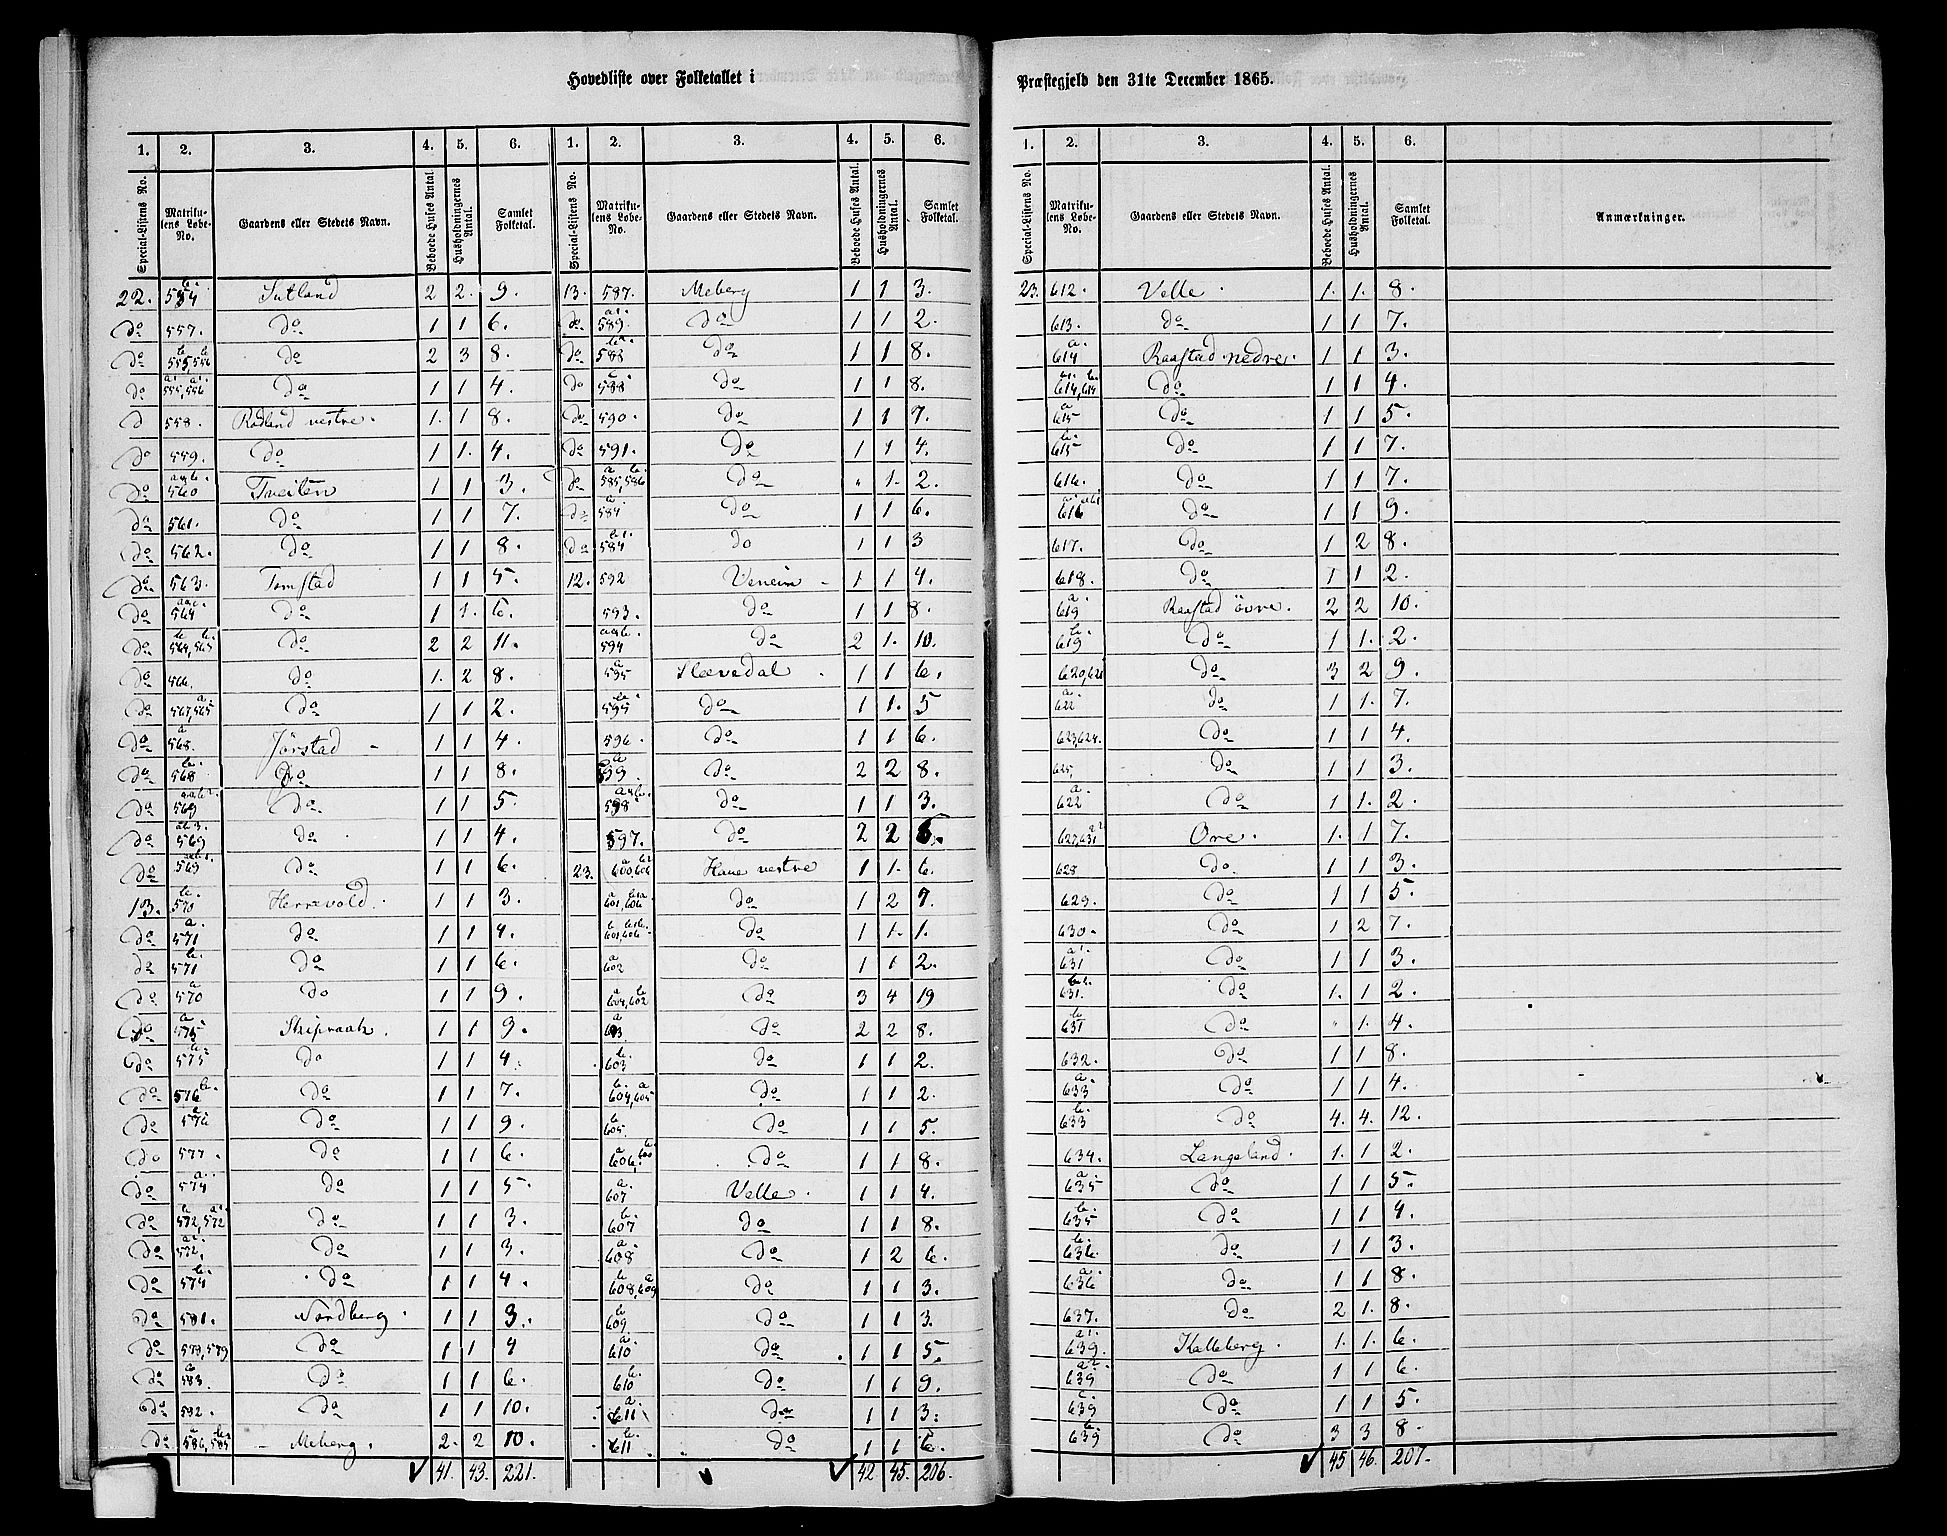 Hovedliste over Folketallet i Præstegjeld den 31te December 1865.
1. 2. 3. 4. 5. 6. 1. 2. 3. 4. 5. 6.
Special-Listens No. Matrikulens Løbe-No. Gaardens eller Stedets Navn. Beboede Huses Antal. Husholdningernes Antal. Samlet Folketal. Special-Listens No. Matrikulens Løbe-No. Gaardens eller Stedets Navn. Beboede Huses Antal. Husholdningernes Antal. Samlet Folketal.
22. 554 b. Sutland 2 2. 9.
do 557. do 1 1 6.
do 555, 556 b b do 2 3 8.
do 555, 556 a1 a1 do 1 1 4.
d 558. Rødland vestre. 1. 1 8.
do 559. do 1 1. 4.
do 560 Tveiten 1 1 3.
do 561. do 1 1 7.
do 562. do 1 1 8.
do 563. Tomstad 1 1 5.
do 564 do 1 1. 6.
do 564, 565 b b. do 2 2 11.
do 566. do 1. 2 8.
do 567, 565 a do 1 1 2.
do 568. a Jørstad 1 1 4.
do 568 b. do 1 1 8.
do 569 do 1 1 5.
do 569 do 1 1 4.
do 569 do 1 1 6.
13. 570 b. Herrevold. 1 1 3.
do 571 a do 1 1 4.
do 571 b. do 1 1 6.
do 570 a do 1 1 9.
do 575 a Skipraak. 1 1 9.
do 575 b. do 1 1 4.
do 576 b. do 1 1 7.
do 576 a do 1 1 9.
do 577. do 1 1 6.
do 574 a. do 1 1 5.
do 572, 572 do 1 1 3.
do 572. do 1 1 3.
do 574 b. do 1 1 4.
do 581. Nordberg. 1 1 3.
do 578, 579 do 1 1 4
do 583. do 1 1 6.
do 582. do 1 1 10.
do 586, 585 Meberg. 2. 2 10.
41. 43. 221.
13. 587. Meberg 1 1 3.
do 589. a1. do 1 1 2.
do 588 do 1 1 8.
do 588 a do 1 1 8.
do 590. do 1 1 7.
do 591. do 1 1 4.
do 585, 586 a b. do " 1. 2.
do 584 do 1 1 6.
do 584 do 1 1 3
12. 592 Veneim 1 1 4.
593. do 1 1 8.
594 do 2 1. 10.
595 a Sleevedal 1 1 6.
595 b. do 1 1. 5
596. do 1 1 6.
599. do 2 2 8.
598 do 1 1 3.
597. do 2 2 6.
23. 600, 606 Haue vestre 1 1. 6.
601, 606 do 1 2 7.
601, 606 do 1 1. 1.
602 a do 1 1 2.
604, 602 a b do 3 4 19
603. a do 2 2 8.
603 b. do 1 1 2.
604, 605 b. a do 1 1 2.
605. b do 1 1 5.
606, 600 a b. do 1 1 8.
607 a. Velle. 1 1 4.
607 b. do 1 1 8.
608 a. do 1 2 6.
608, 609 b a do 1 1 3.
609 b do 1 1 3.
610 a do 1 1 5.
610 b. do 1 1 9.
611 a. do 1 1 3.
611 b. do 1 1 6.
42 45. 206.
1. 2. 3. 4. 5. 6.
Special-Listens No. Matrikulens Løbe-No. Gaardens eller Stedets Navn. Beboede Huses Antal. Husholdningernes Antal. Samlet Folketal. Anmærkninger.
23. 612. Velle. 1. 1. 8.
613. do 1 1 7.
614 a. Raastad nedre. 1 1 3.
614, 614 do 1 1 4.
615 a do 1 1 5.
615 b. do 1 1 7.
616. do 1 1 7.
616 do 1 1 9.
617. do 1 2 8.
618. do 1 1 2.
619 a. Raastad øvre. 2 2 10.
619 b. do 1 1. 2.
620, 621 do 3 2 9.
622 a. do 1 1. 7.
623, 624. do 1 1 4.
625, do 1 1 3.
622 a. do 1 1. 2.
627, 631 a2 Ore. 1. 1 7.
628 do. 1 1 3.
629. do 1 1 5.
630. do 1 2 7.
631 a1. do 1 1 3.
631. do 1. 1 2.
631 b do " 1. 4.
632. do 1 1 8.
633 a do 1 1 4.
633 b. do 4. 4. 12.
634. Langeland. 1. 1 2.
635 a do 1 1 5.
635 b. do 1 1 4.
636. b. do 1 1 3.
636 a. do 1 1 8.
637. do 2 1. 8.
639. a1. Kalleberg. 1. 1. 6.
639 a2. do 1 1 6.
639 c. do 1 1 5.
639 b. do 3 3 8.
45 46. 207.